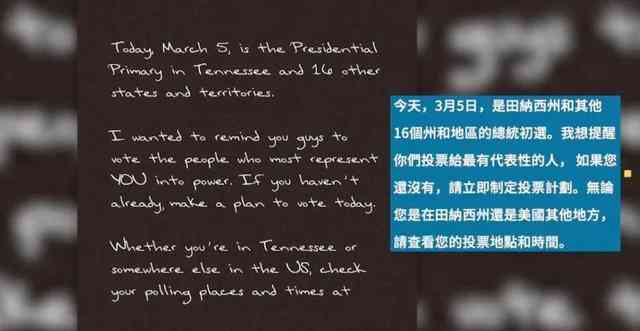 Today, March 5, is the Presidential
Primary in Tennessee and 16 other
states and territories.
I wanted to remind you guys to
vote the people who most represent
YOU into power. If you haven't
already, make a plan to vote today.
Whether you're in Tennessee or
somewhere else in the US, check
your polling places and times at
今天，3月5日，是田納西州和其他
16個州和地區的總統初選。我想提醒
你們投票給最有代表性的人， 如果您
還沒有，請立即制定投票計劃。無論
您是在田納西州還是美國其他地方，
請查看您的投票地點和時間。